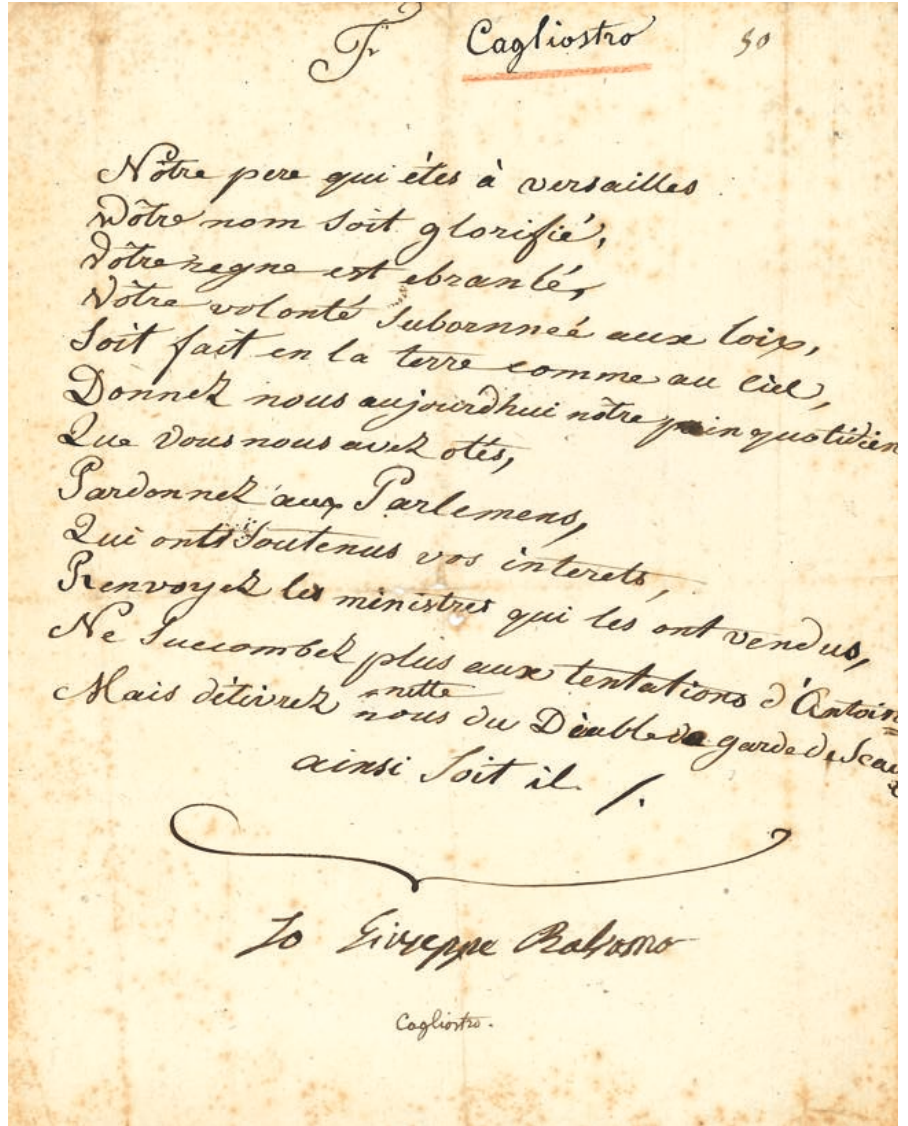 Fr Cagliostro 50
Nôtre pere qui étes à versailles
Vôtre nom soit glorifié,
Vôtre regne est ebranlé,
Vôtre volonté subornneé aux loix,
Soit fait en la terre comme au ciel,
Donnez nous aujourdhui nôtre pain quotidien
Que vous nous avez otés,
Pardonnez aux Parlemens,
Qui onts soutenus vos interets,
Renvoyez les ministres qui les ont vendus,
Ne succombez plus aux tentations d'Antoin=
=nette
Mais délivrez nous du Diable de garde de Sceaux
ainsi soit il /.
Io Giuseppe Balsamo
Cagliostro.